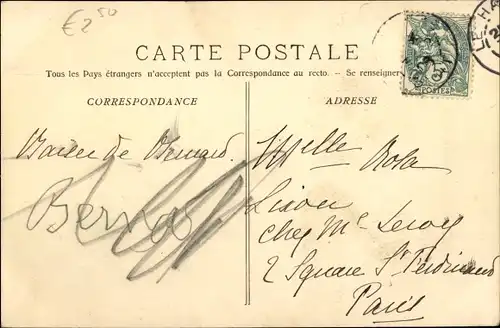 € 2,50
CARTE POSTALE
Tous les Pays étrangers n'acceptent pas la Correspondance au recto. — Se renseigner
CORRESPONDANCE
ADRESSE
POSTES
LE HA
Baiser de Bernard.
Berna
Melle
chez Me Leroy
2 Square St Ferdinand
Paris